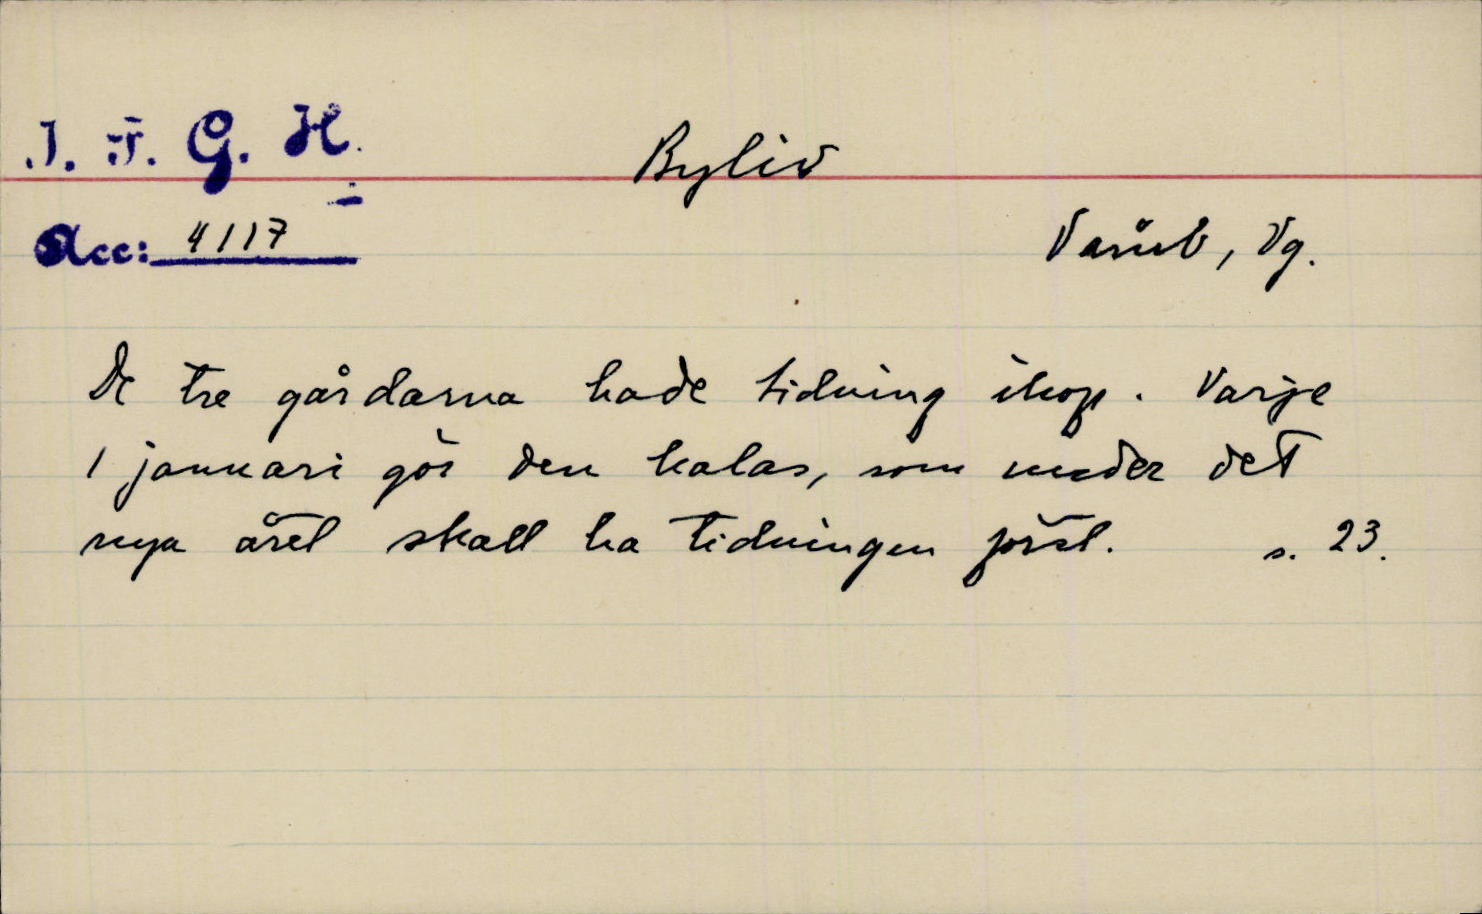 I. F. G. H.
Byliv
Acc: 4117
Varnb, Vg.
De tre gårdarna hade tidning ihop. Varje
1 januari gör den kalas, som under det
nya året skall ha tidningen först. s. 23.